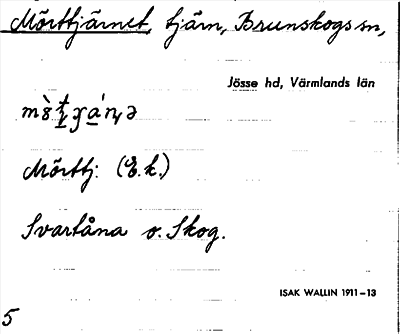 Mörttjärnet, tjärn, Brunskogs sn,
Jösse hd, Värmlands län
Mörttj: (E.k.)
Svartåna o. Skog.
ISAK WALLIN 1911–13
5